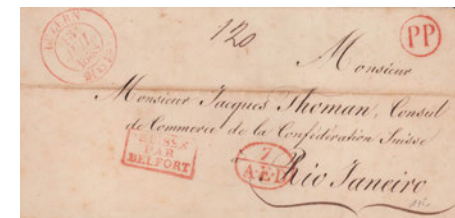 LUZERN
120
PP
Monsieur
Monsieur Jacques Thoman, Consul
de Commerce de la Confédération Suisse
SUISSE
PAR
BELFORT
7
A.E.D.
Rio Janeiro